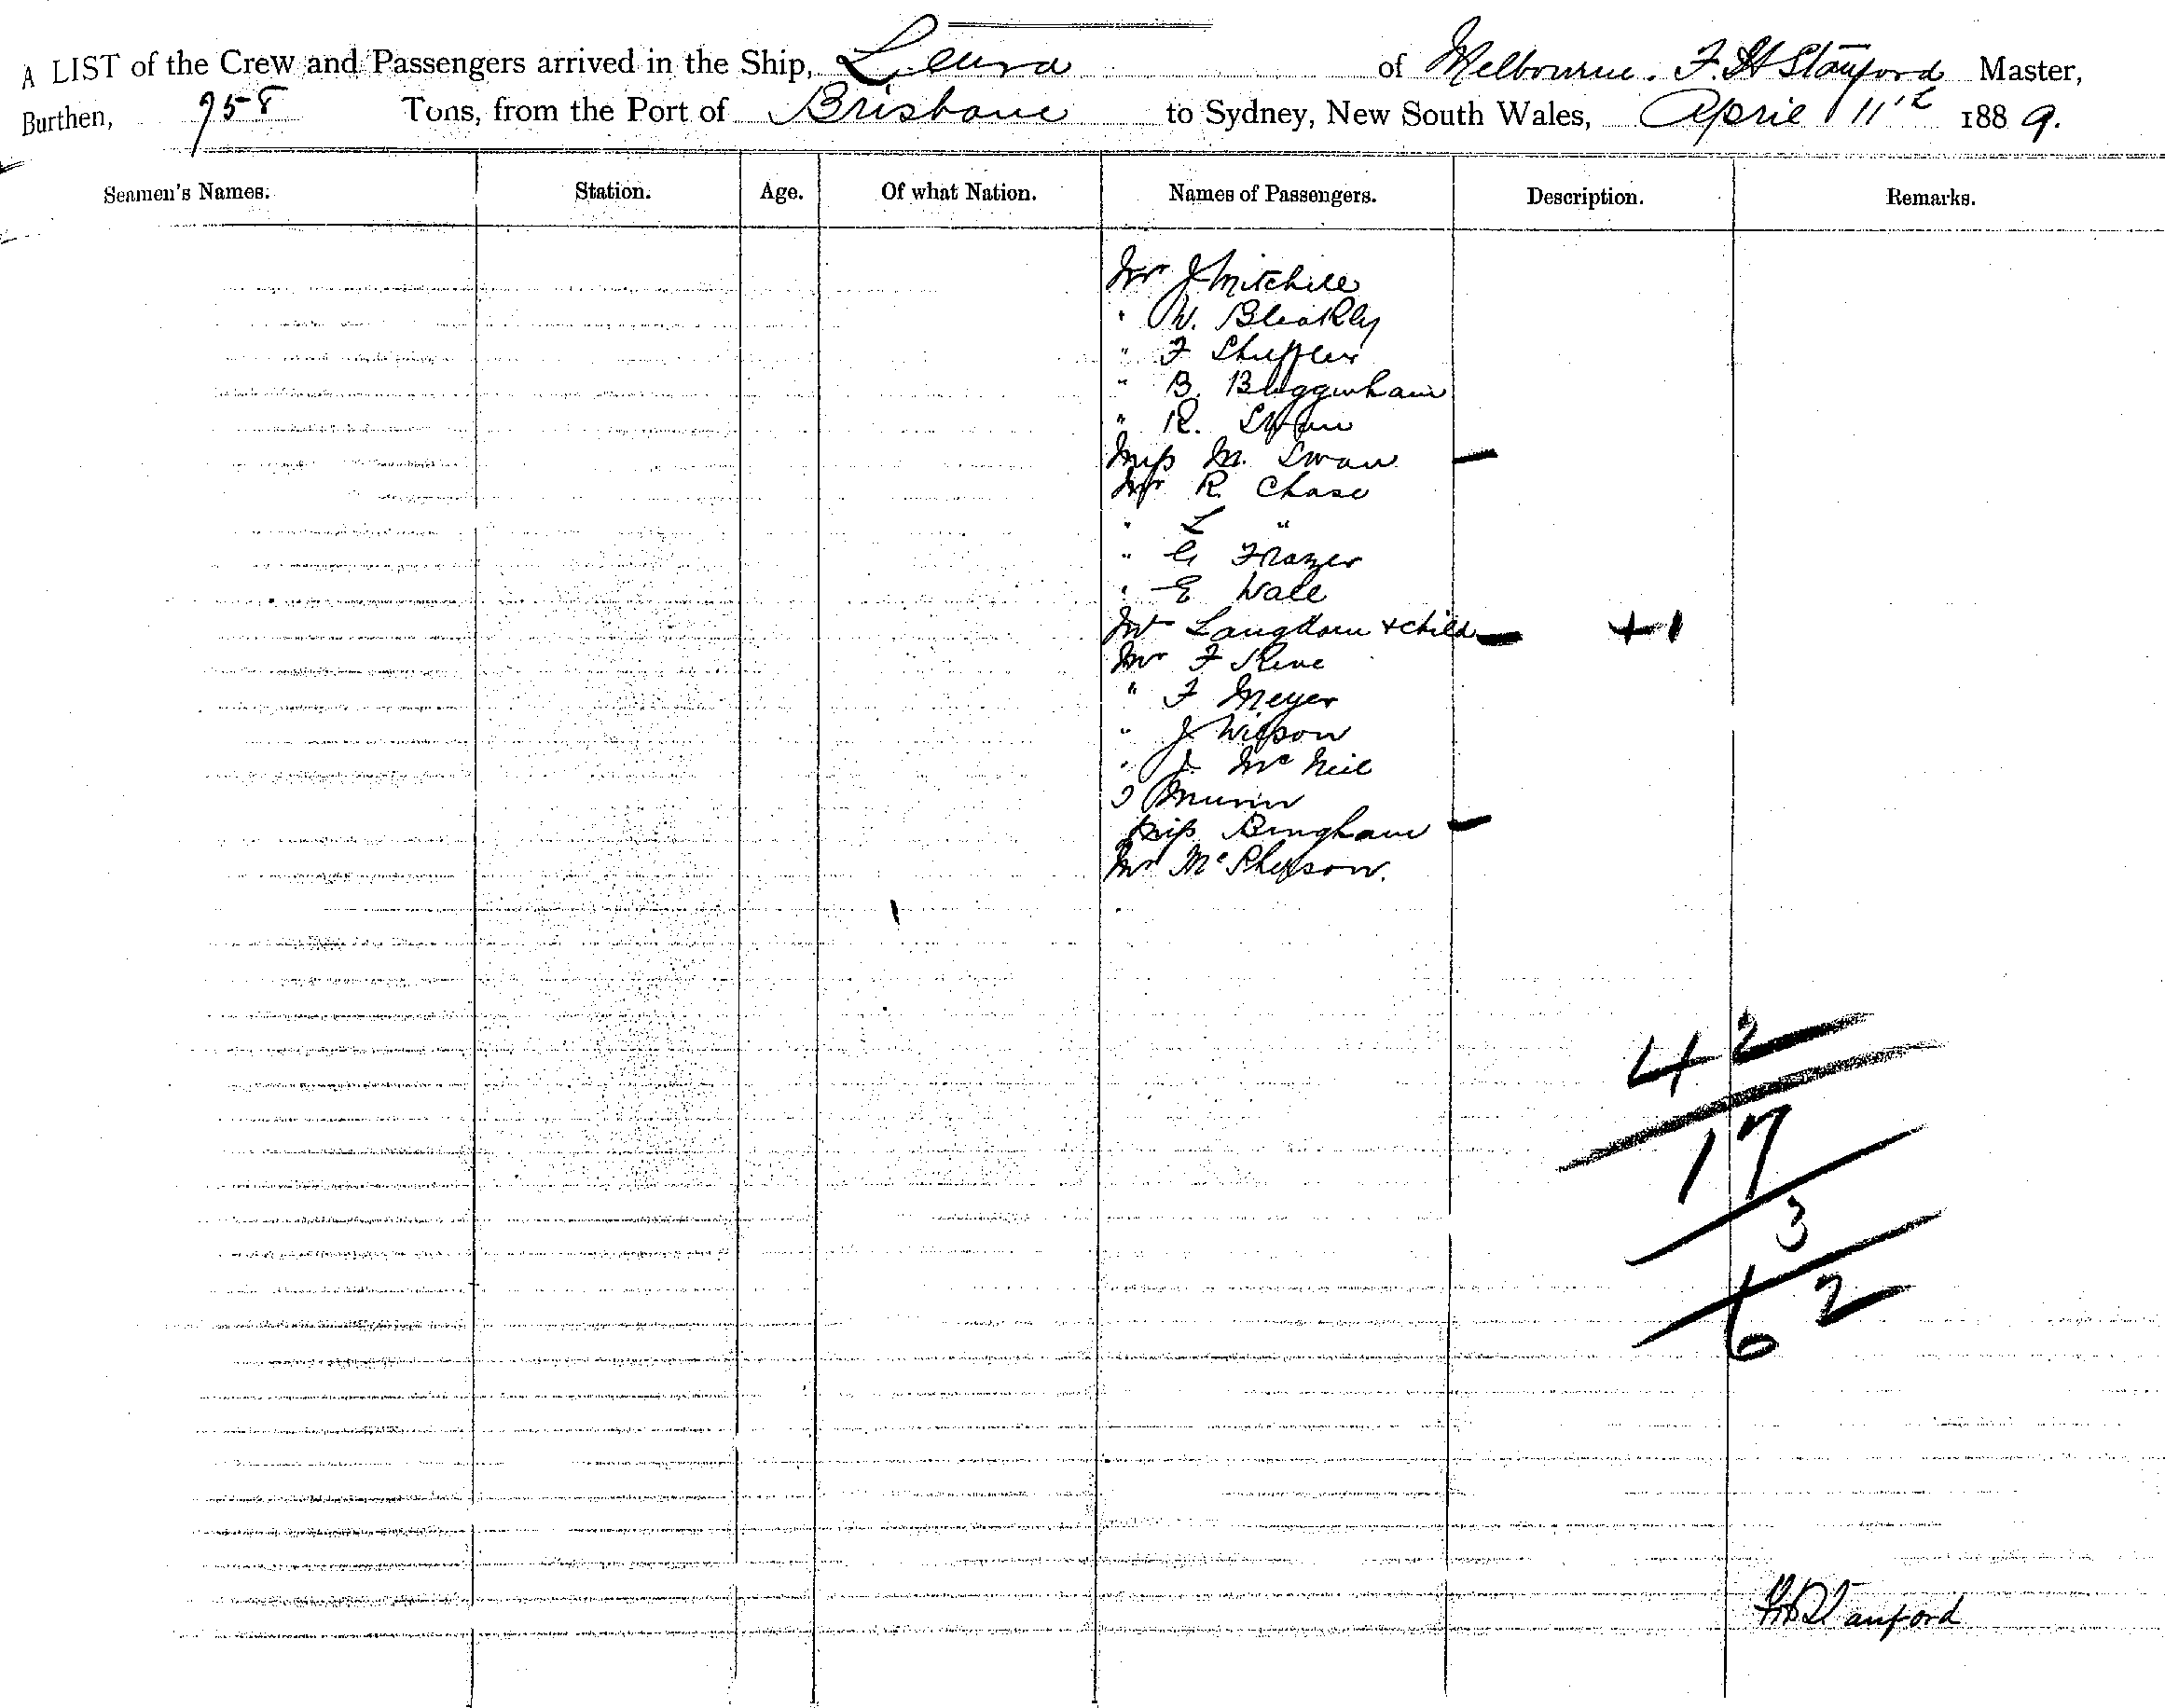 A LIST of the Crew and Passengers arrived in the Ship, Leura of Melbourne. F. H Stanford Master,
Burthen, 958 Tons, from the Port of Brisbane to Sydney, New South Wales, April 11th 1889.
Seamen's Names. Station. Age. Of what Nation. Names of Passengers. Description. Remarks.
Mr J Mitchell
" W. Bleakly
" F
" B.
" R. Swan
Miss M. Swan –
Mr R Chase
" L "
" G Frazer
" E Wall
Langdon + child – + 1
Mr F
" F Meyer
" J Wilson
" J. Mc Neil
Miss Bingham –
Mr McPherson.
42
17
3
62
FHStanford